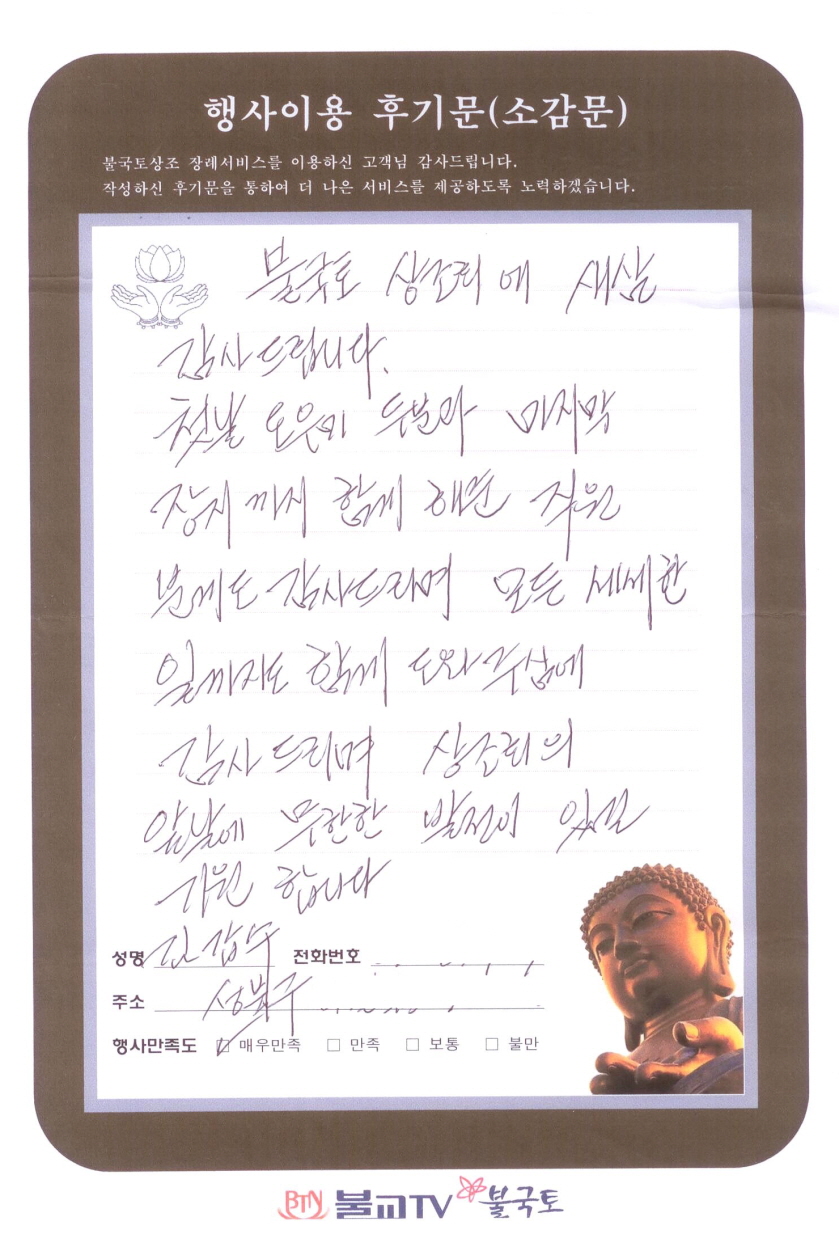 행사이용 후기문(소감문)
불국토상조 장례서비스를 이용하신 고객님 감사드립니다.
작성하신 후기문을 통하여 더 나은 서비스를 제공하도록 노력하겠습니다.
불국토 상조회에 새삼
감사드립니다.
첫날 도우미 두분과 마지막
장지까지 함께 해준 직원
분께도 감사드리며 모든 세세한
일까지도 함께 도와주심에
감사드리며 상조회의
앞날에 무한한 발전이 있길
기원 합니다
성명 김갑수 전화번호
주소 성북구
행사만족도 ☑ 매우만족 □ 만족 □ 보통 □ 불만
BTN 불교TV 불국토